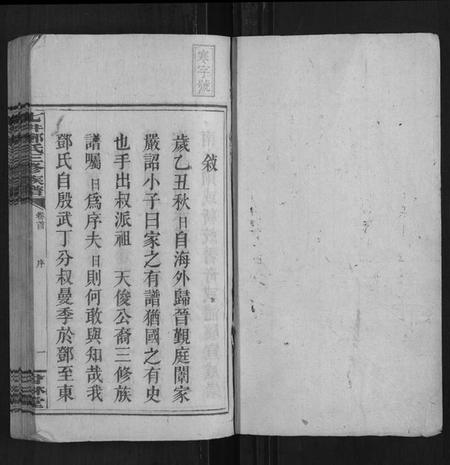 寒字號
敘
歲乙丑秋日自海外歸晉覲庭闈家
嚴詔小子曰家之有譜猶國之有史
也手出叔派祖 天俊公裔三修族
譜囑日為序夫日則何敢與知哉我
鄧氏自殷武丁分叔曼季於鄧至東
鄧氏三修族譜
卷首
序
一